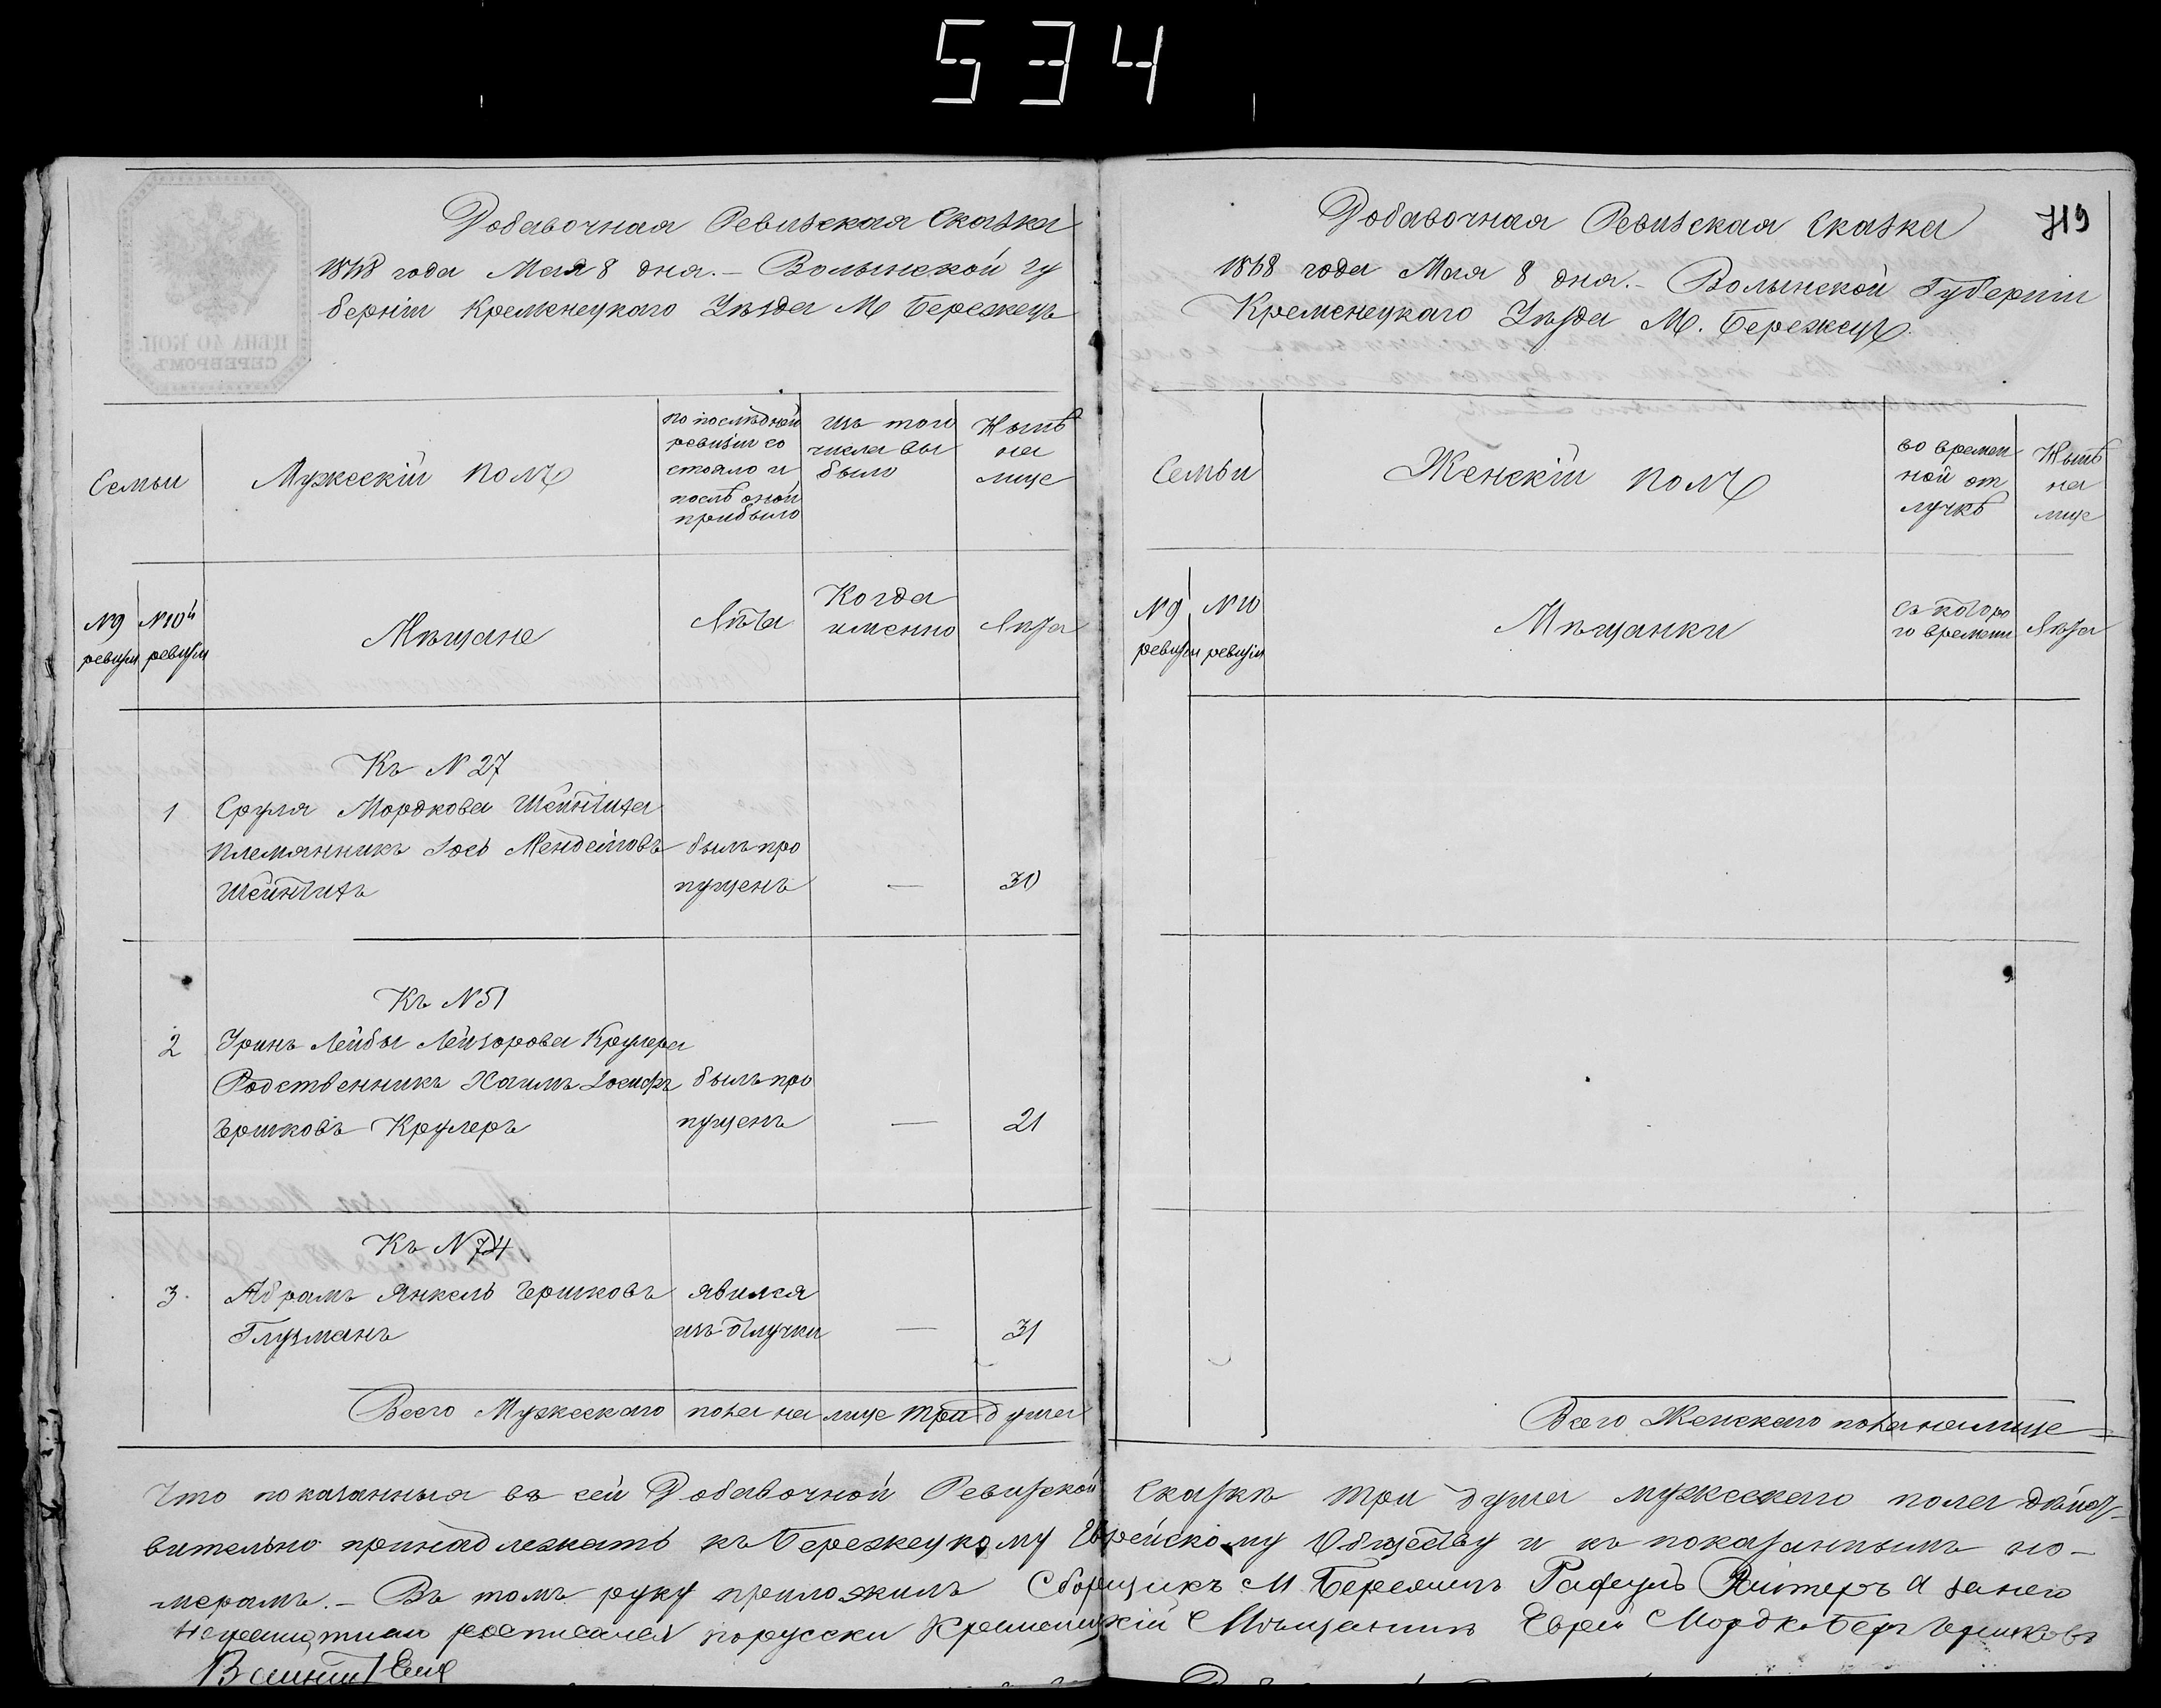 534
Добавочная Ревизская Сказка
1868 года Мая 8 дня. – Волынской гу
бернiи Кременецкаго Уѣзда М Бережецъ
ЦѢНА 40 КОП.
СЕРЕБРОМЪ
Семьи
Мужескiй полъ
по послѣдней
ревизiи со
стояло и
послѣ оной
прибыло
изъ того
числа вы
было
Нынѣ
на
лице
№9
ревизiи
№10й
ревизiи
Мѣщане
Лѣта
Когда
именно
Лѣта
Къ № 27
1 Сруля Мордкова Шейнтиха
племянникъ Iось Менделiовъ былъ про
Шейнтихъ пущенъ — 30
Къ № 51
2 Уринъ Лейбы Лейзорова Крупера
Родственникъ Хаимъ Iосифъ былъ про
Гершковъ Круперъ пущенъ — 21
Къ № 74
3 Абрамъ Янкель Гершковъ явился
Глузманъ изъ отлучки — 31
Всего Мужескаго пола на лице три душа
Добавочная Ревизская Сказка 719
1868 года Мая 8 дня. – Волынской Губернiи
Кременецкаго Уѣзда М. Бережецъ
Семьи
Женскiй полъ
во времен
ной от
лучкѣ
Нынѣ
на
лице
№9
ревизiи
№10
ревизiи
Мѣщанки
съ которо
го времени
Лѣта
Всего Женскаго пола на лице —
Что показанныя въ сей Добавочной Ревизской Сказкѣ три душа мужескаго пола дѣйст-
вительно принадлежатъ къ Бережецкому Еврейскому Обществу и къ показаннымъ но-
мерамъ. – Въ томъ руку приложилъ Сборщикъ М Рафуль Райтеръ а за него
неграмотнаго росписался порусски Кременецкiй Мѣщанинъ Еврей Мордко Беръ Гершковъ